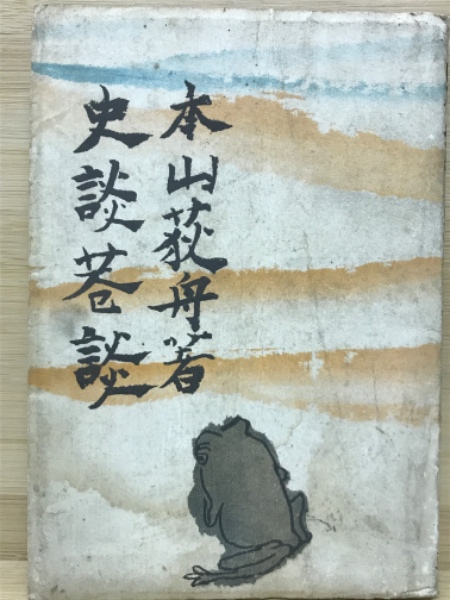 本山荻舟著
史談巷談